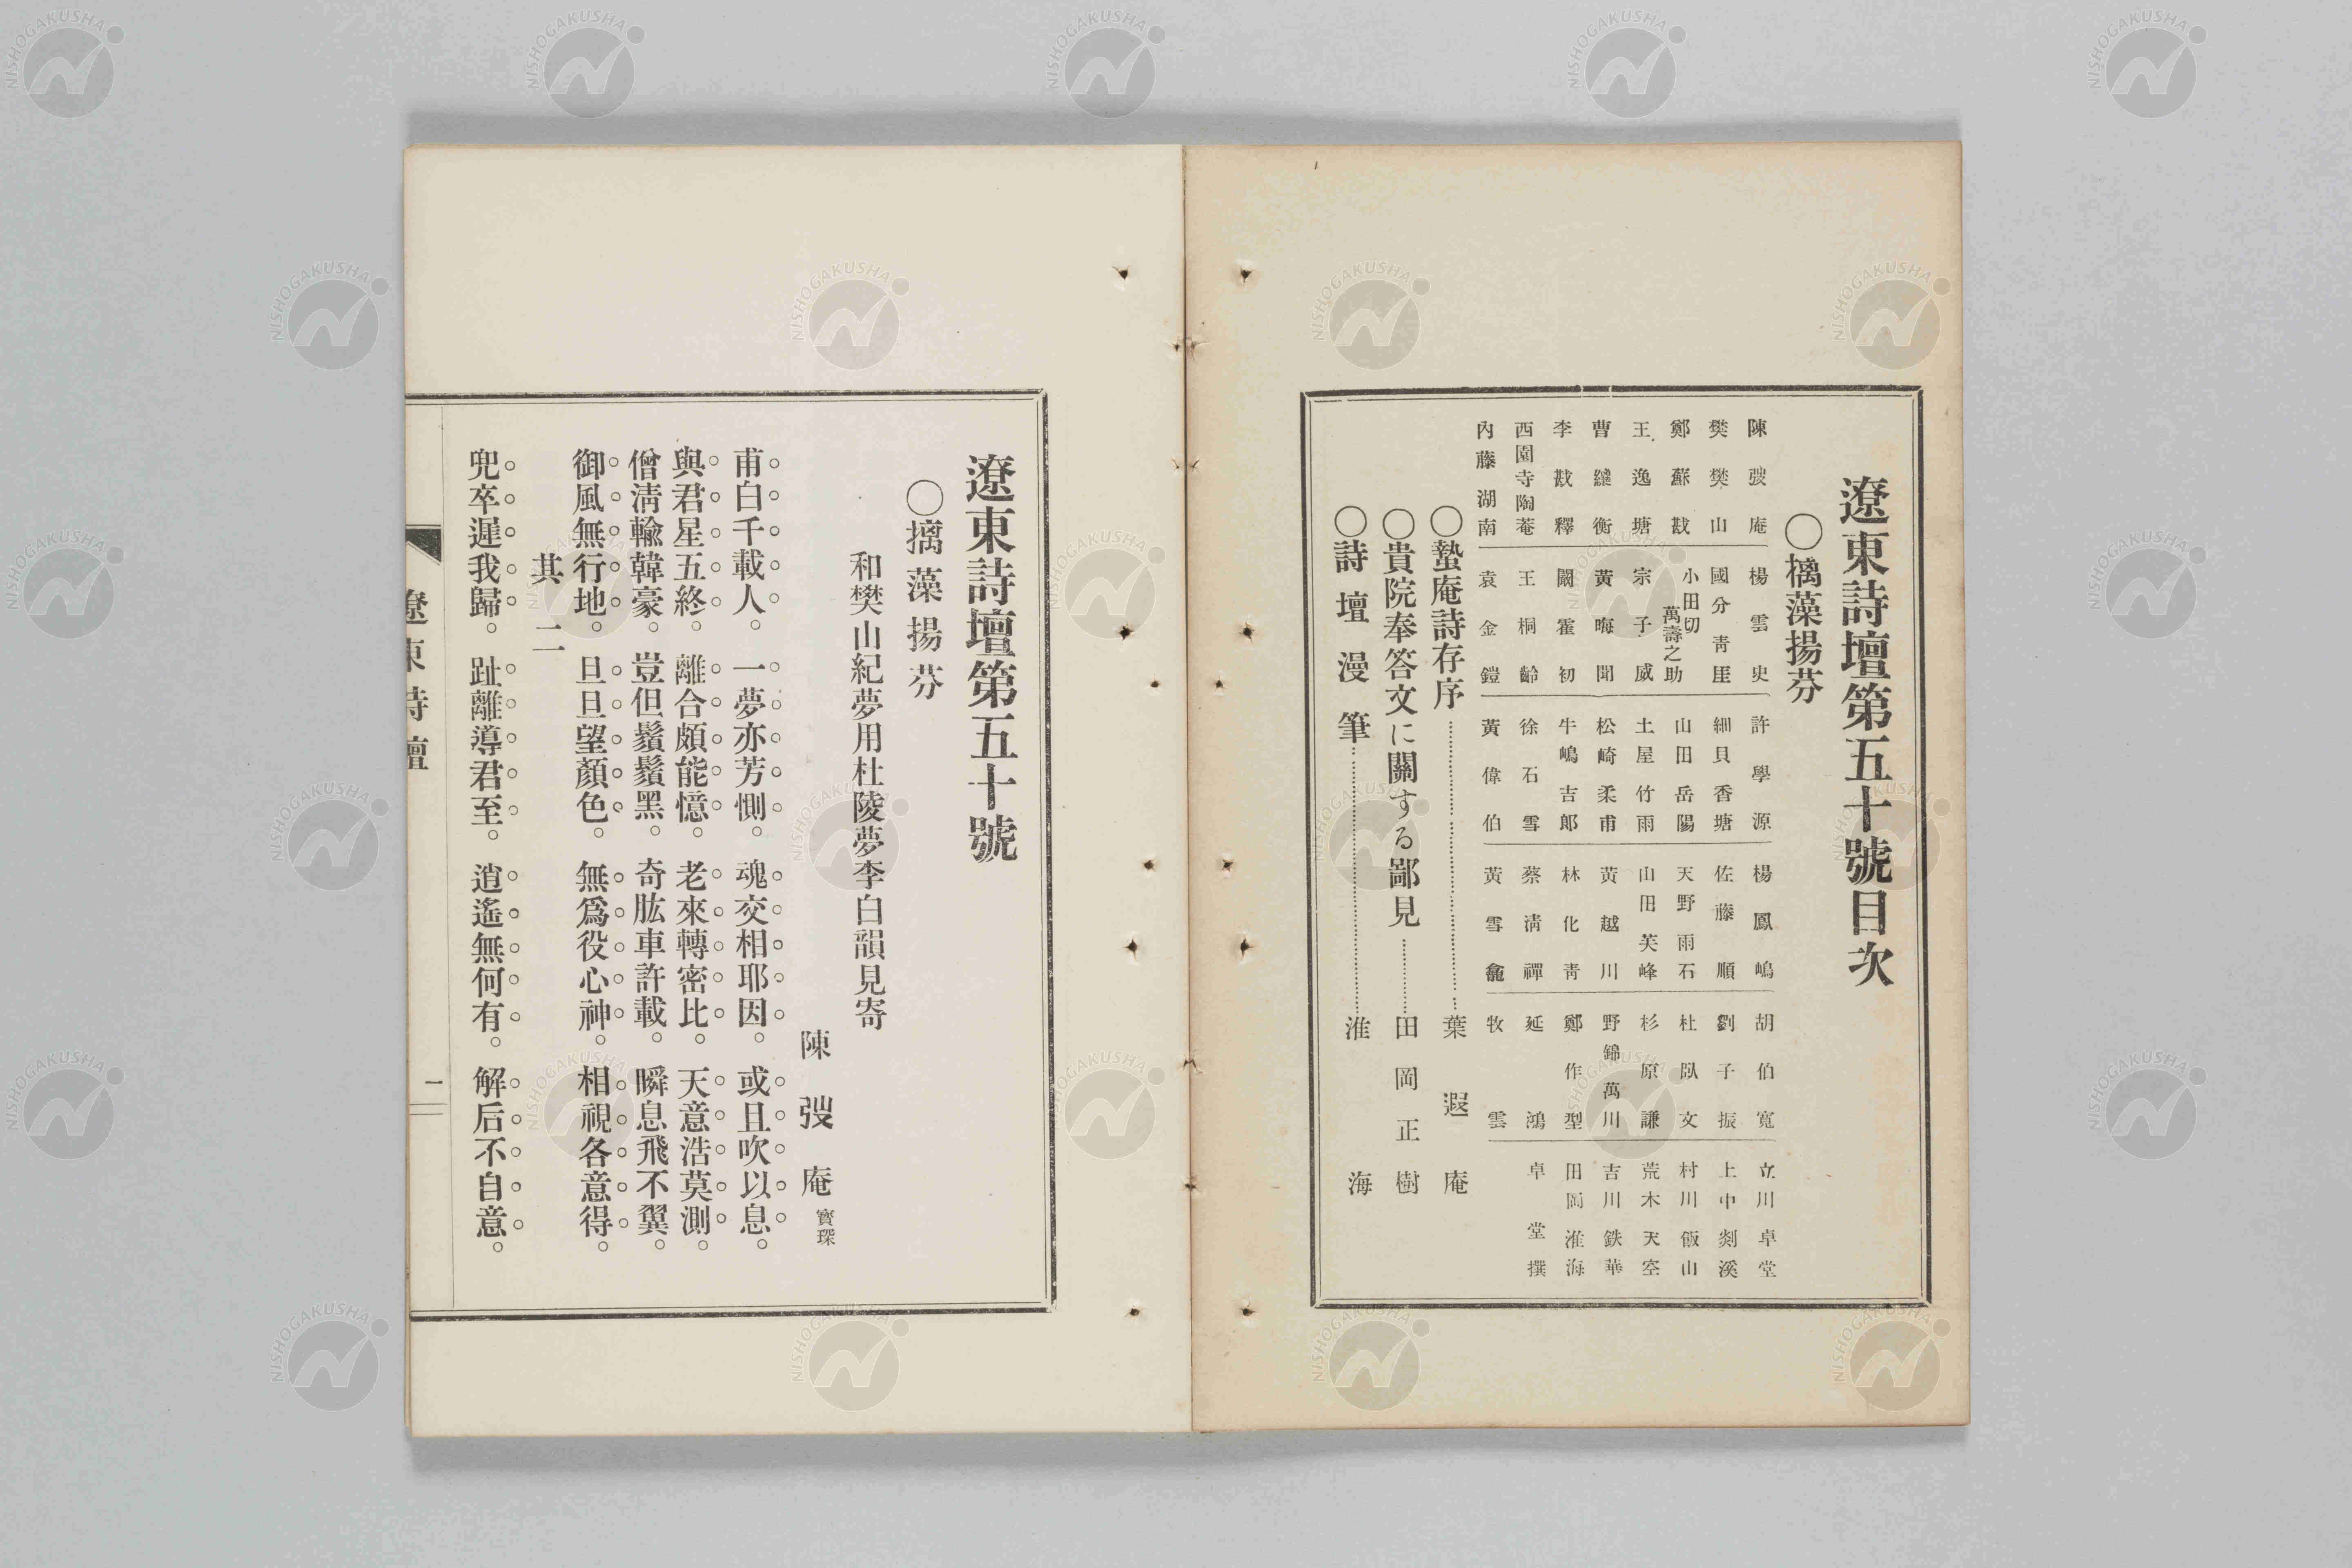 遼東詩壇第五十號目次
〇摛藻揚芬
陳弢庵　楊雲史　許學源　楊鳳嶋　胡伯寬　立川卓堂
樊樊山　國分靑厓　細貝香塘　佐藤順　劉子振　上中剡溪
鄭蘇戡　小田切萬壽之助　山田岳陽　天野雨石　杜臥文　村川飯山
王逸塘　宗子威　土屋竹雨　山田芙峰　杉原謙　荒木天空
曹纕衡　黃晦聞　松崎柔甫　黃越川　野錦萬川　吉川鉄華
李戡釋　闞霍初　牛嶋吉郞　林化靑　鄭作型　田岡淮海
西園寺陶菴　王桐齡　徐石雪　蔡淸禪　延鴻　卓堂撰
內藤湖南　袁金鎧　黃偉伯　黃雪龕　牧雲
〇蟄庵詩存序…………葉遐庵
〇貴院奉答文に關する鄙見…………田岡正樹
〇詩壇漫筆…………淮海
遼東詩壇第五十號
〇摛藻揚芬
和樊山紀夢用杜陵夢李白韻見寄
陳弢庵 寳琛
甫白千載人。一夢亦芳惻。魂交相耶因。或且吹以息。
與君星五終。離合頗能憶。老來轉密比。天意浩莫測。
僧淸輸韓豪。豈但鬚鬢黑。奇肱車許載。瞬息飛不翼。
御風無行地。旦旦望顏色。無爲役心神。相視各意得。
其二
兜卒遲我歸。趾離導君至。逍遙無何有。解后不自意。
遼東詩壇
一
NISHOGAKUSHA